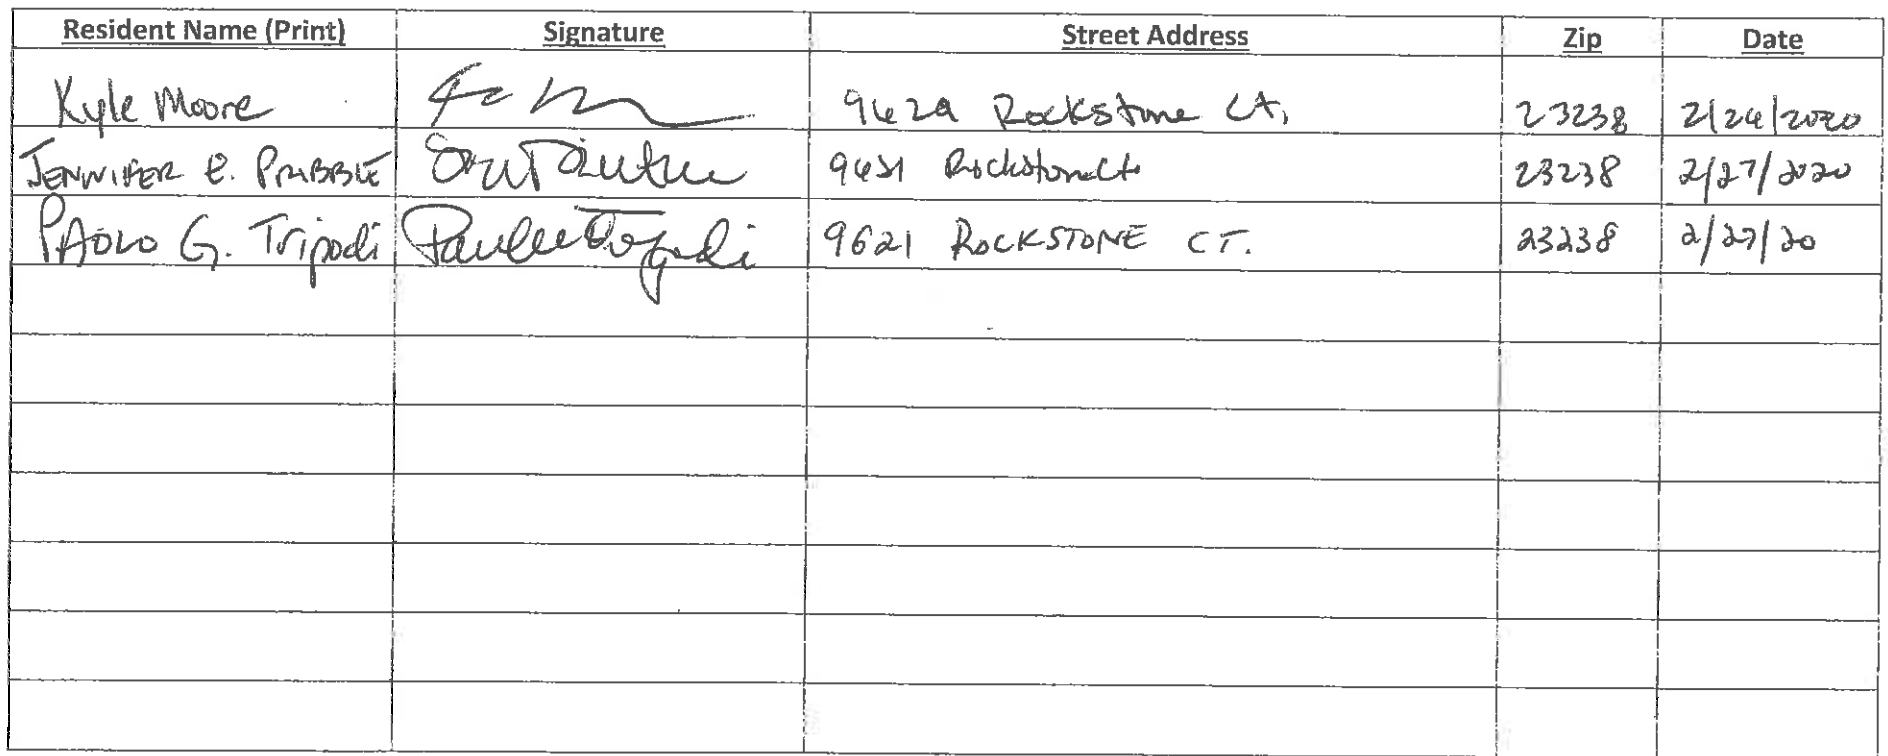 Resident Name (Print) Signature Street Address Zip Date
Kyle Moore 9629 Rockstone Ct. 23238 2/26/2020
JENNIFER E. PRIBBLE Rockstone Ct 23238 2/27/2020
PAOLO G. Tripodi 9621 ROCKSTONE CT. 23238 2/27/20